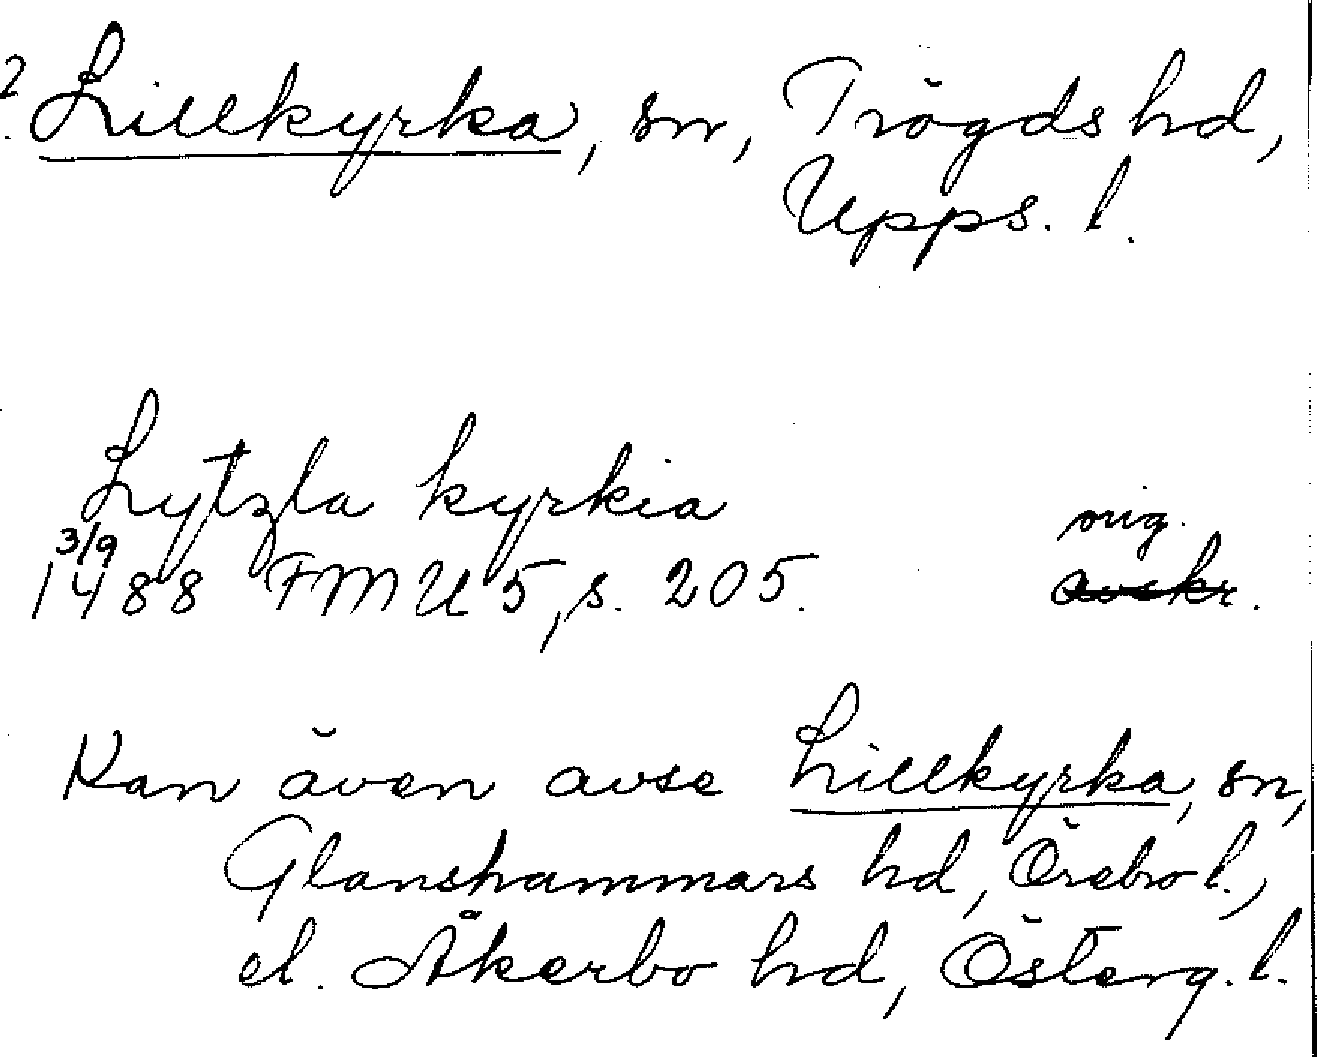 ? Lillkyrka, sn, Trögds hd,
Upps. l.
Lytzla kyrkia
orig.
3/9
1488 FMU 5, s. 205.
avskr.
Kan även avse Lillkyrka, sn,
Glanshammars hd, Örebro l.,
el. Åkerbo hd, Österg. l.